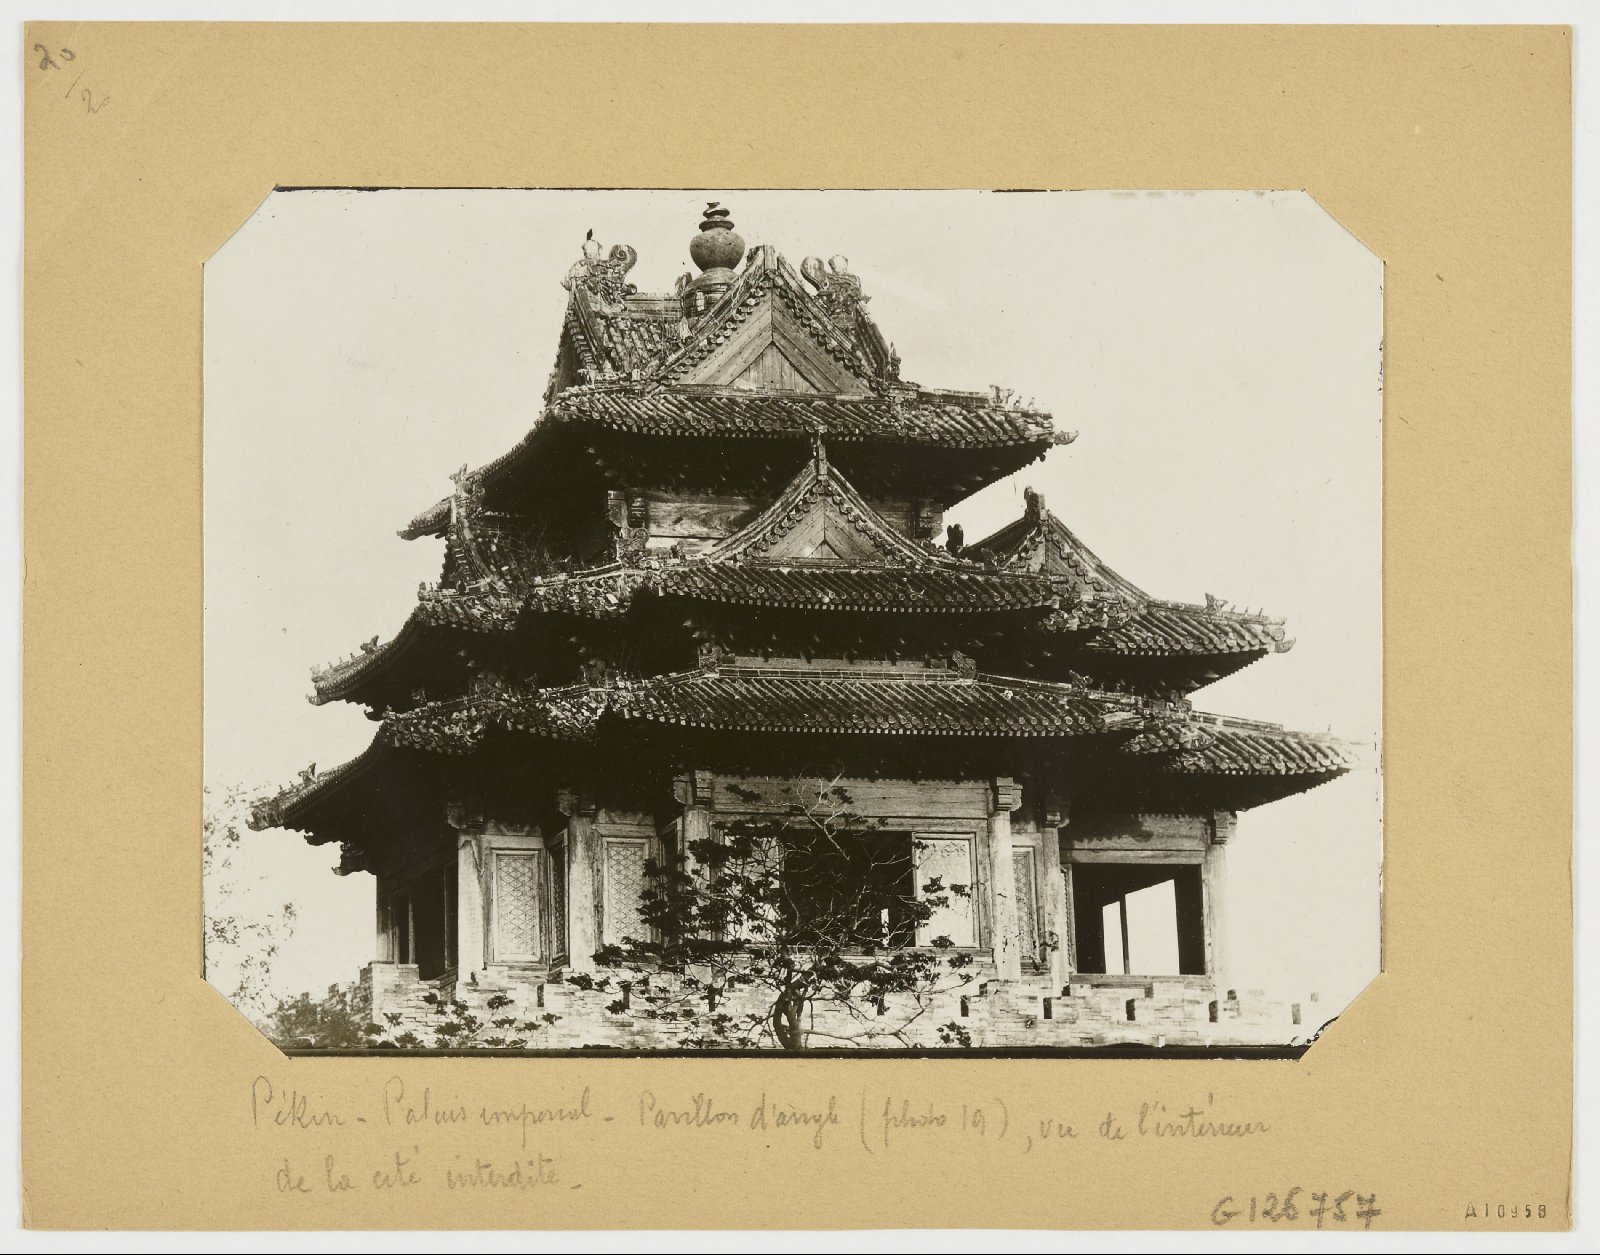 20
/20
Pékin - Palais impérial - Pavillon d'angle (photo 19), vue de l'intérieur
de la cité interdite -
G 126757
A10958